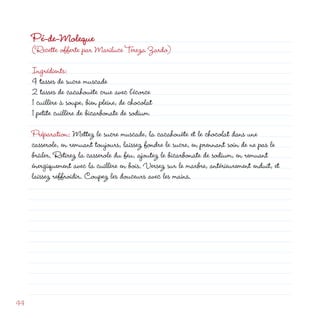 Pé-de-Moleque
(Recette offerte par Mariluce Tereza Zardo)
Ingrédients:
4 tasses de sucre muscade
2 tasses de cacahouète crue avec l'écorce
1 cuillère à soupe, bien pleine, de chocolat
1 petite cuillère de bicarbonate de sodium
Préparation: Mettez le sucre muscade, la cacahouète et le chocolat dans une
casserole, en remuant toujours, laissez fondre le sucre, en prennant soin de ne pas le
brûler. Retirez la casserole du feu, ajoutez le bicarbonate de sodium, en remuant
énergiquement avec la cuillère en bois. Versez sur le marbre, antérieurement enduit, et
laissez reffroidir. Coupez les douceurs avec les mains.
44